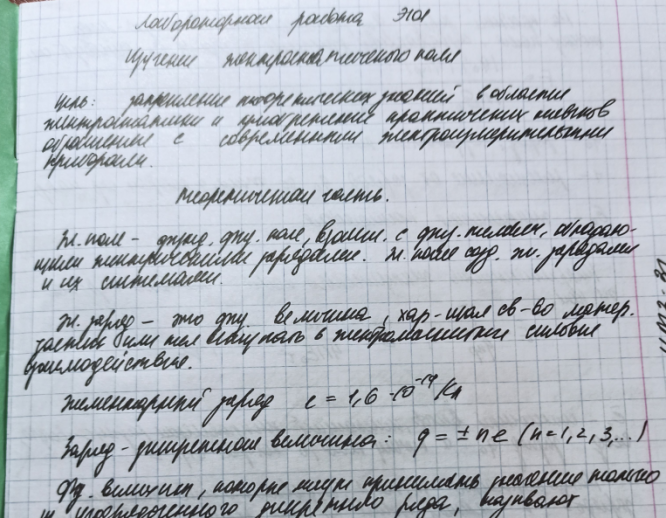 Лабораторная работа Э101
Изучение электростатического поля
Цель: закрепление теоретических знаний в области
электростатики и приобретение практических навыков
обращения с современными электроизмерительными
приборами.
Теоретическая часть.
Эл. поле - фунд. физ. поле, взаим. с физ. телами, обладаю-
щими электрическими зарядами. Эл. поле созд. эл. зарядами
и их системами.
Эл. заряд - это физ. величина, хар-щая св-во матер.
частиц или тел вступать в электромагнитные силовые
взаимодействие.
Элементарный заряд e = 1,6 · 10⁻¹⁹ Кл
Заряд - дискретная величина: q = ± ne (n = 1, 2, 3, ...)
Физ. величины, которые могут принимать значение только
из упорядоченного дискретного ряда, называют